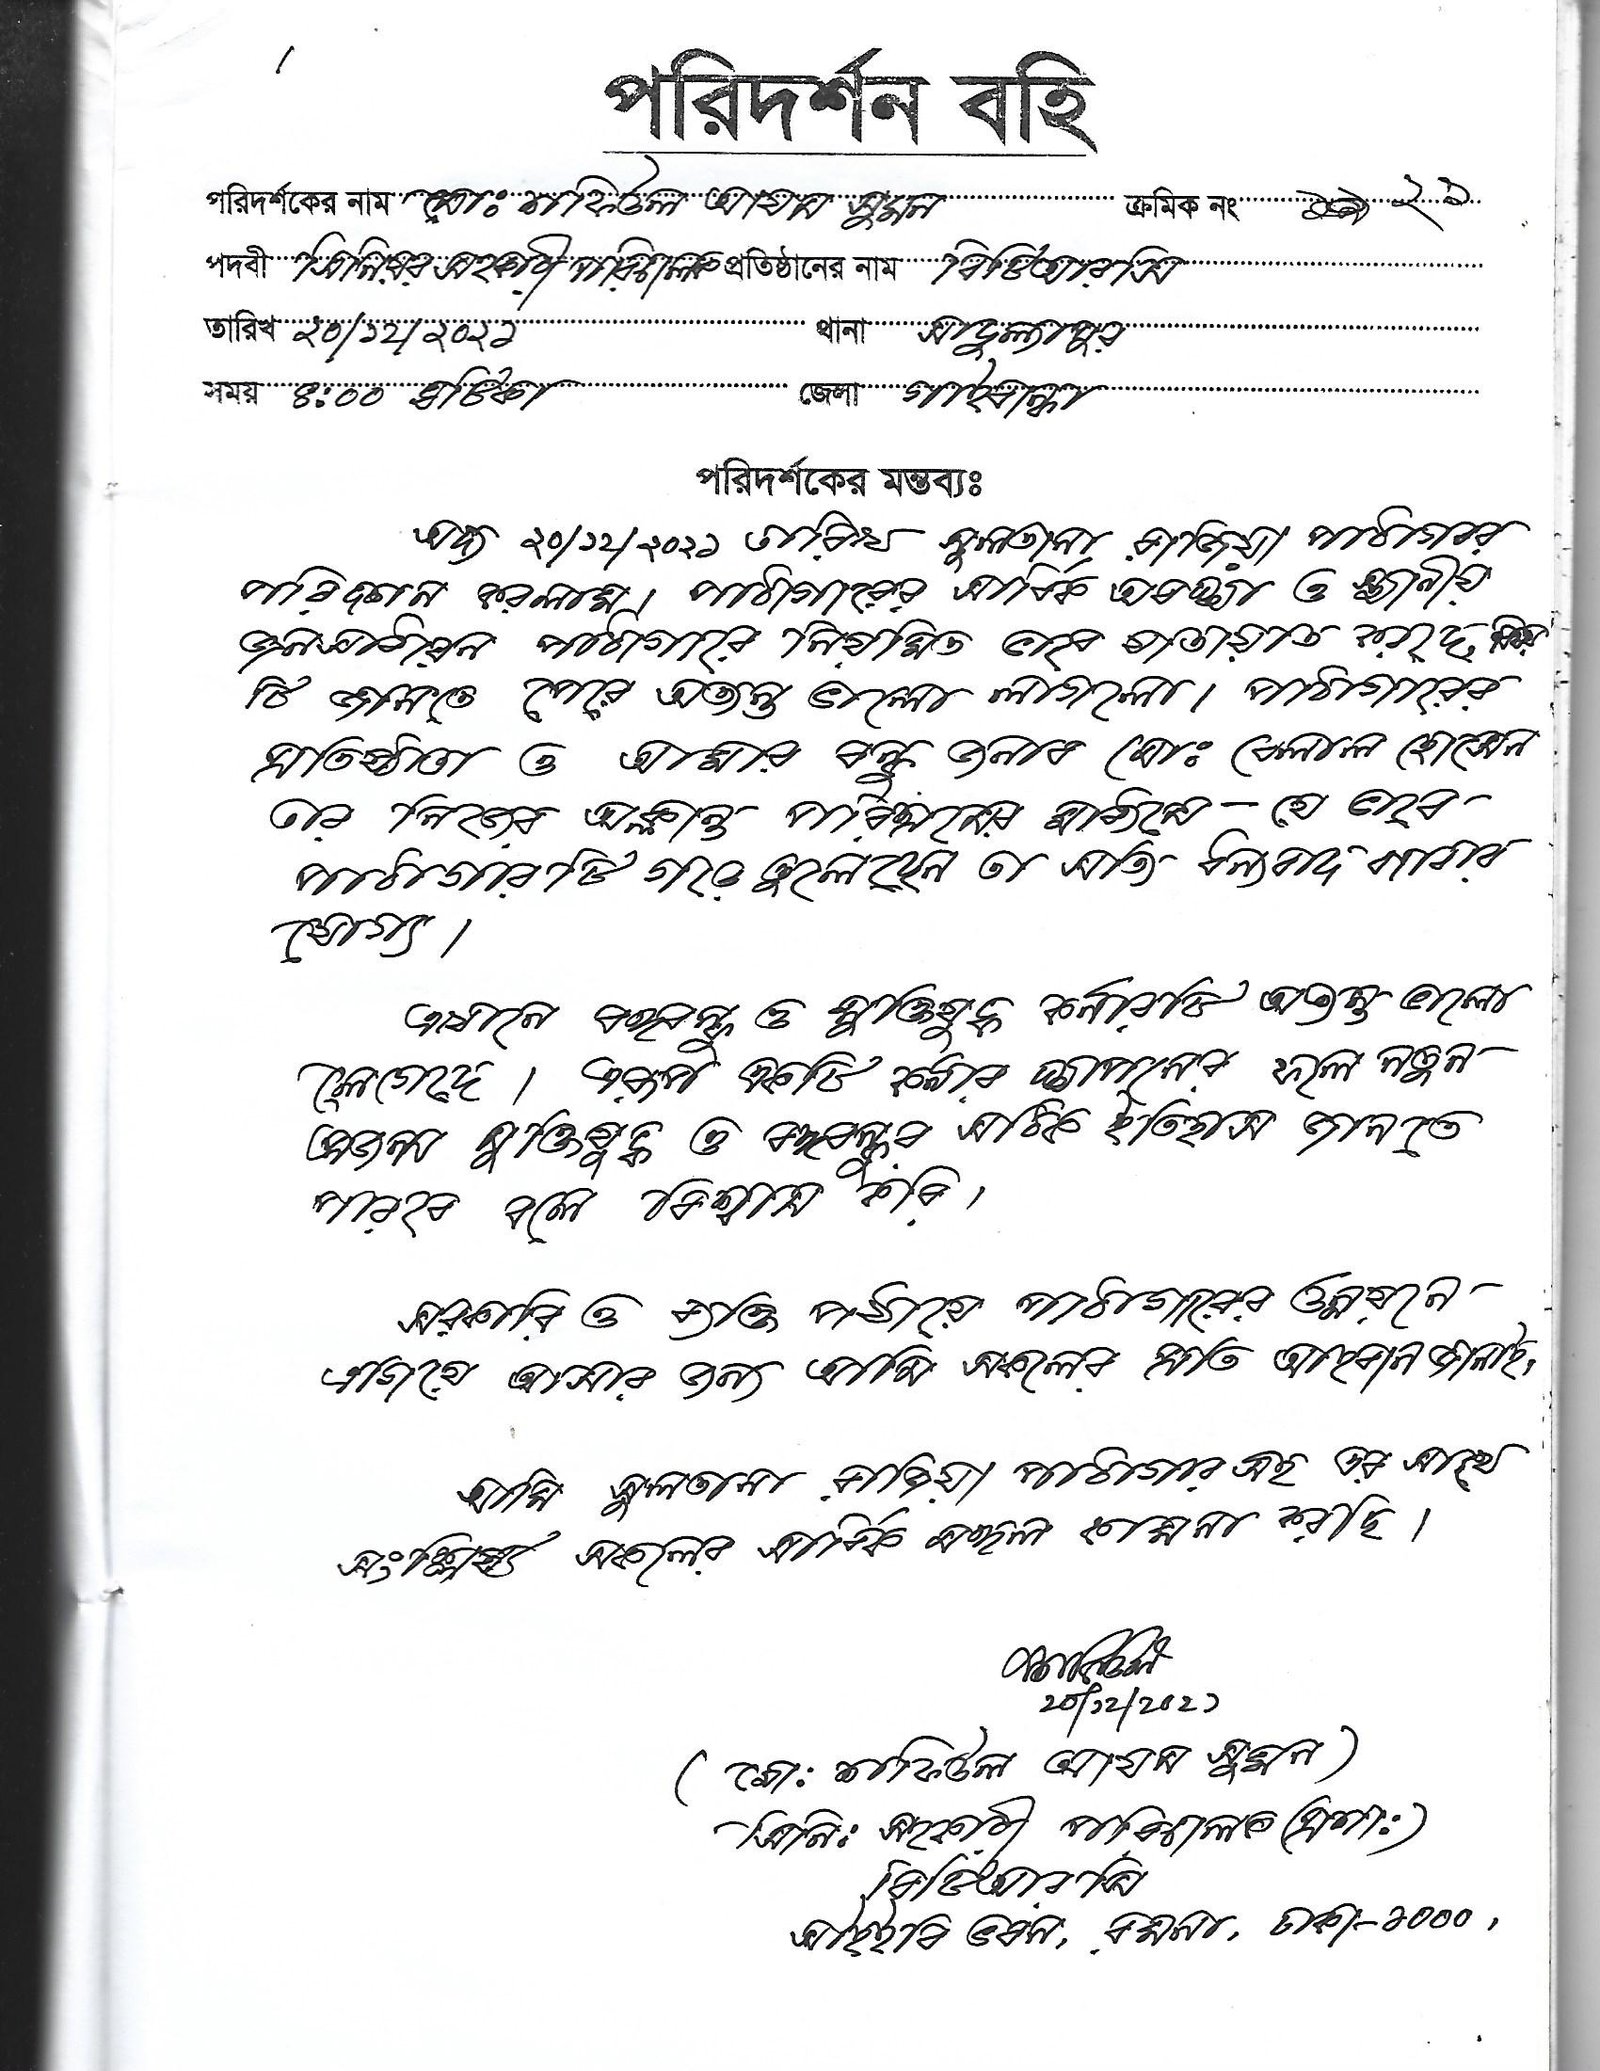 পরিদর্শন বহি
পরিদর্শকের নাম মোঃ শফিউল আযম সুমন ক্রমিক নং ২১
পদবী সিনিয়র সহকারী পরিচালক প্রতিষ্ঠানের নাম বিটিআরসি
তারিখ ২০/১২/২০২১ থানা সাদুল্যাপুর
সময় ৪:০০ ঘটিকা জেলা গাইবান্ধা
পরিদর্শকের মন্তব্যঃ
অদ্য ২০/১২/২০২১ তারিখ সুলতানা রাজিয়া পাঠাগার
পরিদর্শন করলাম। পাঠাগারের সার্বিক অবস্থা ও স্থানীয়
জনসাধারন পাঠাগারে নিয়মিত ভাবে যাতায়াত করছে, বিষয়
টি জানতে পেরে অত্যন্ত ভালো লাগলো। পাঠাগারের
প্রতিষ্ঠাতা ও আমার বন্ধু জনাব মোঃ বেলাল হোসেন
তার নিজের অক্লান্ত পরিশ্রমের মাধ্যমে যে ভাবে
পাঠাগারটি গড়ে তুলেছেন তা সত্যি ধন্যবাদ পাবার
যোগ্য।
এখানে বঙ্গবন্ধু ও মুক্তিযুদ্ধ কর্নারটি অত্যন্ত ভালো
লেগেছে। এরূপ একটি কর্নার স্থাপনের ফলে নতুন
প্রজন্ম মুক্তিযুদ্ধ ও বঙ্গবন্ধুর সঠিক ইতিহাস জানতে
পারবে বলে বিশ্বাস করি।
সরকারি ও ব্যক্তি পর্যায়ে পাঠাগারের উন্নয়নে
এগিয়ে আসার জন্য আমি সকলের প্রতি আহবান জানাই,
আমি সুলতানা রাজিয়া পাঠাগার সহ এর সাথে
সংশ্লিষ্ট সকলের সার্বিক মঙ্গল কামনা করছি।
২০/১২/২০২১
( মো: শফিউল আযম সুমন )
সিনিঃ সহকারী পরিচালক (প্রশা:)
বিটিআরসি
আইইবি ভবন, রমনা, ঢাকা-১০০০,